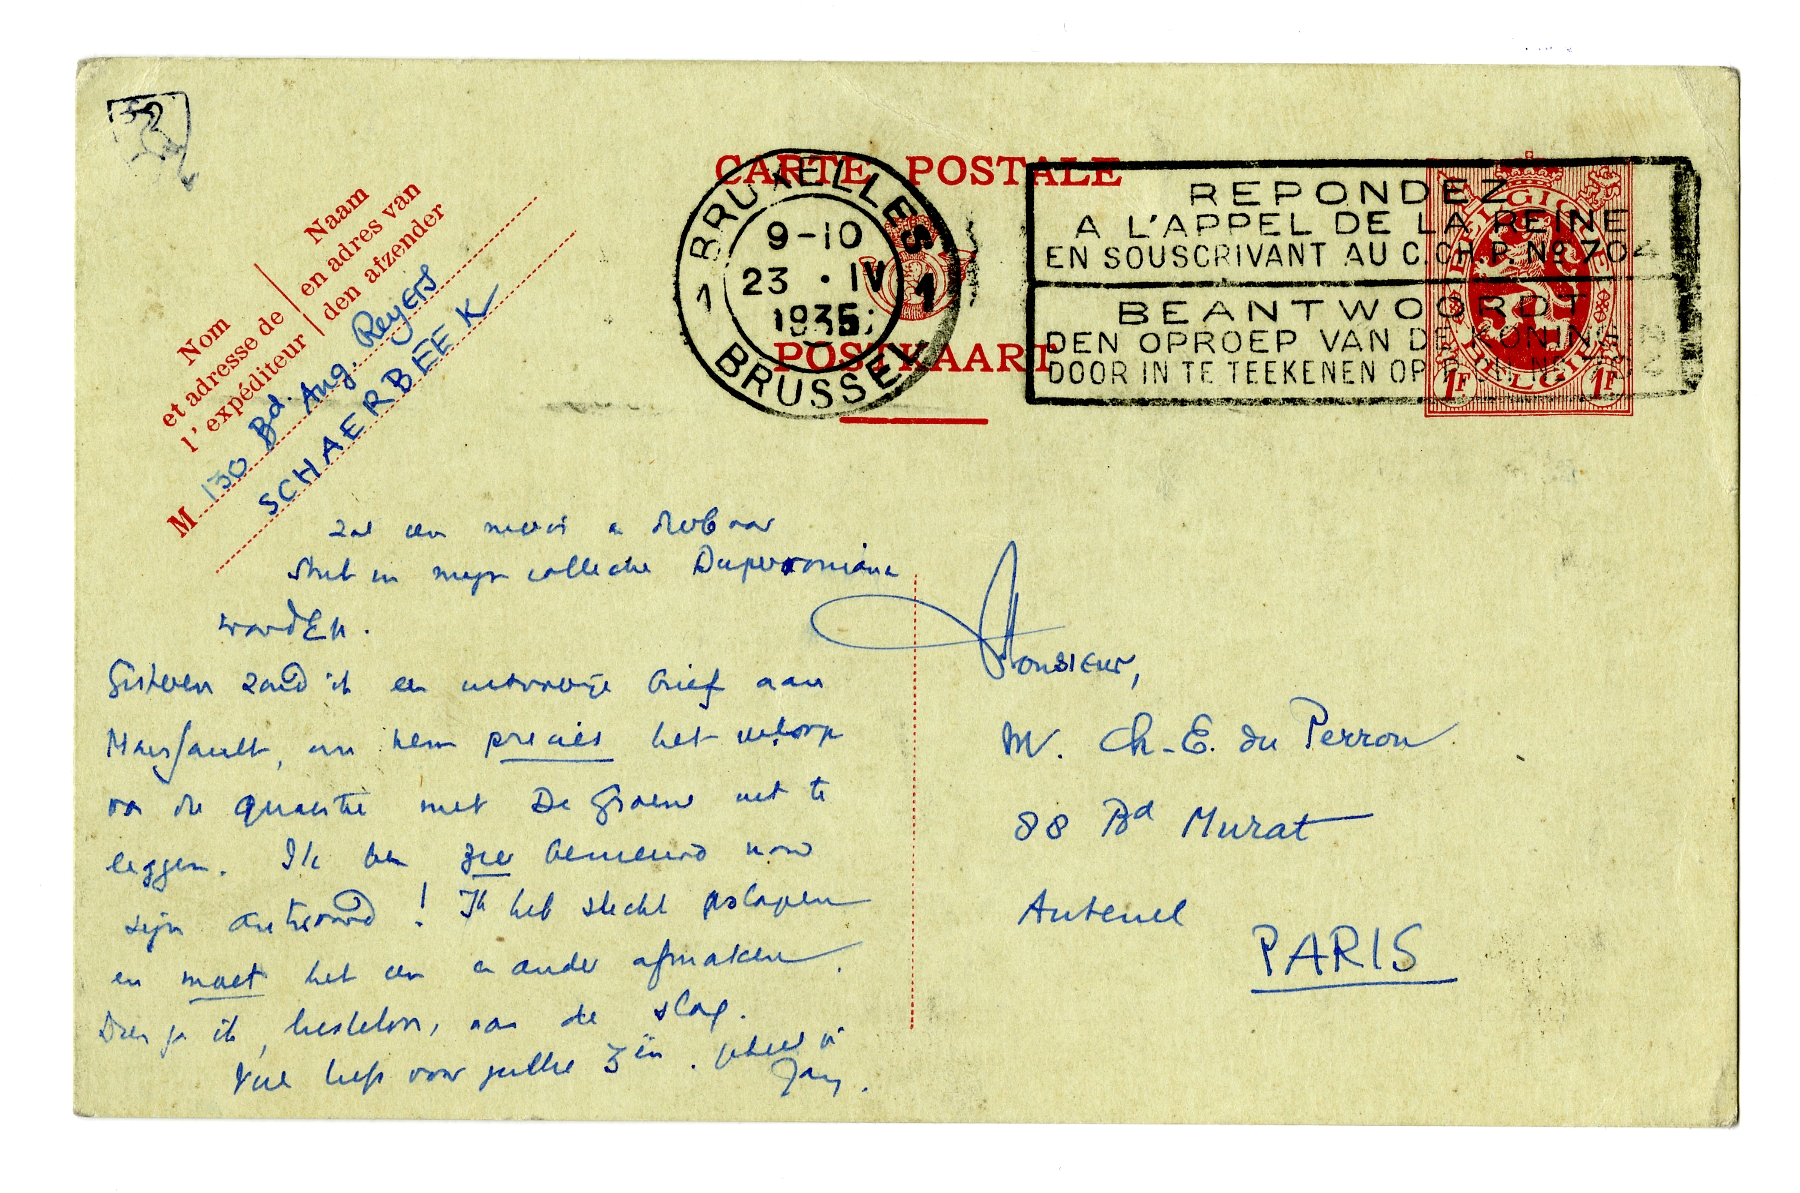 32
CARTE POSTALE
POSTKAART
1 BRUXELLES 1
9-10
23 · IV
1935
BRUSSEL
REPONDEZ
A L'APPEL DE LA REINE
EN SOUSCRIVANT AU C.CH.P. No 704
BEANTWOORDT
DEN OPROEP VAN DE KONINGIN
DOOR IN TE TEEKENEN OP
BELGIQUE
BELGIE
1F 1F
Nom
et adresse de
l'expéditeur
Naam
en adres van
den afzender
M 130 Bd. Aug. Reyers
SCHAERBEEK
zal een mooi & dierbaar
stuk in mijn collectie Duperroniana
wordEn.
Gisteren zond ik een uitvoerige brief aan
Marsfault, om hem precies het verloop
van de quaestie met De Groene uit te
leggen. Ik ben zeer benieuwd naar
zijn antwoord! Ik heb slecht geslapen
en moet het een & ander afmaken.
Dus ga ik, trillend, aan de slag.
Veel liefs voor jullie 3ën. geheel je
Jan.
Monsieur,
M. Ch-E. du Perron
88 Bd Murat
Auteuil
PARIS